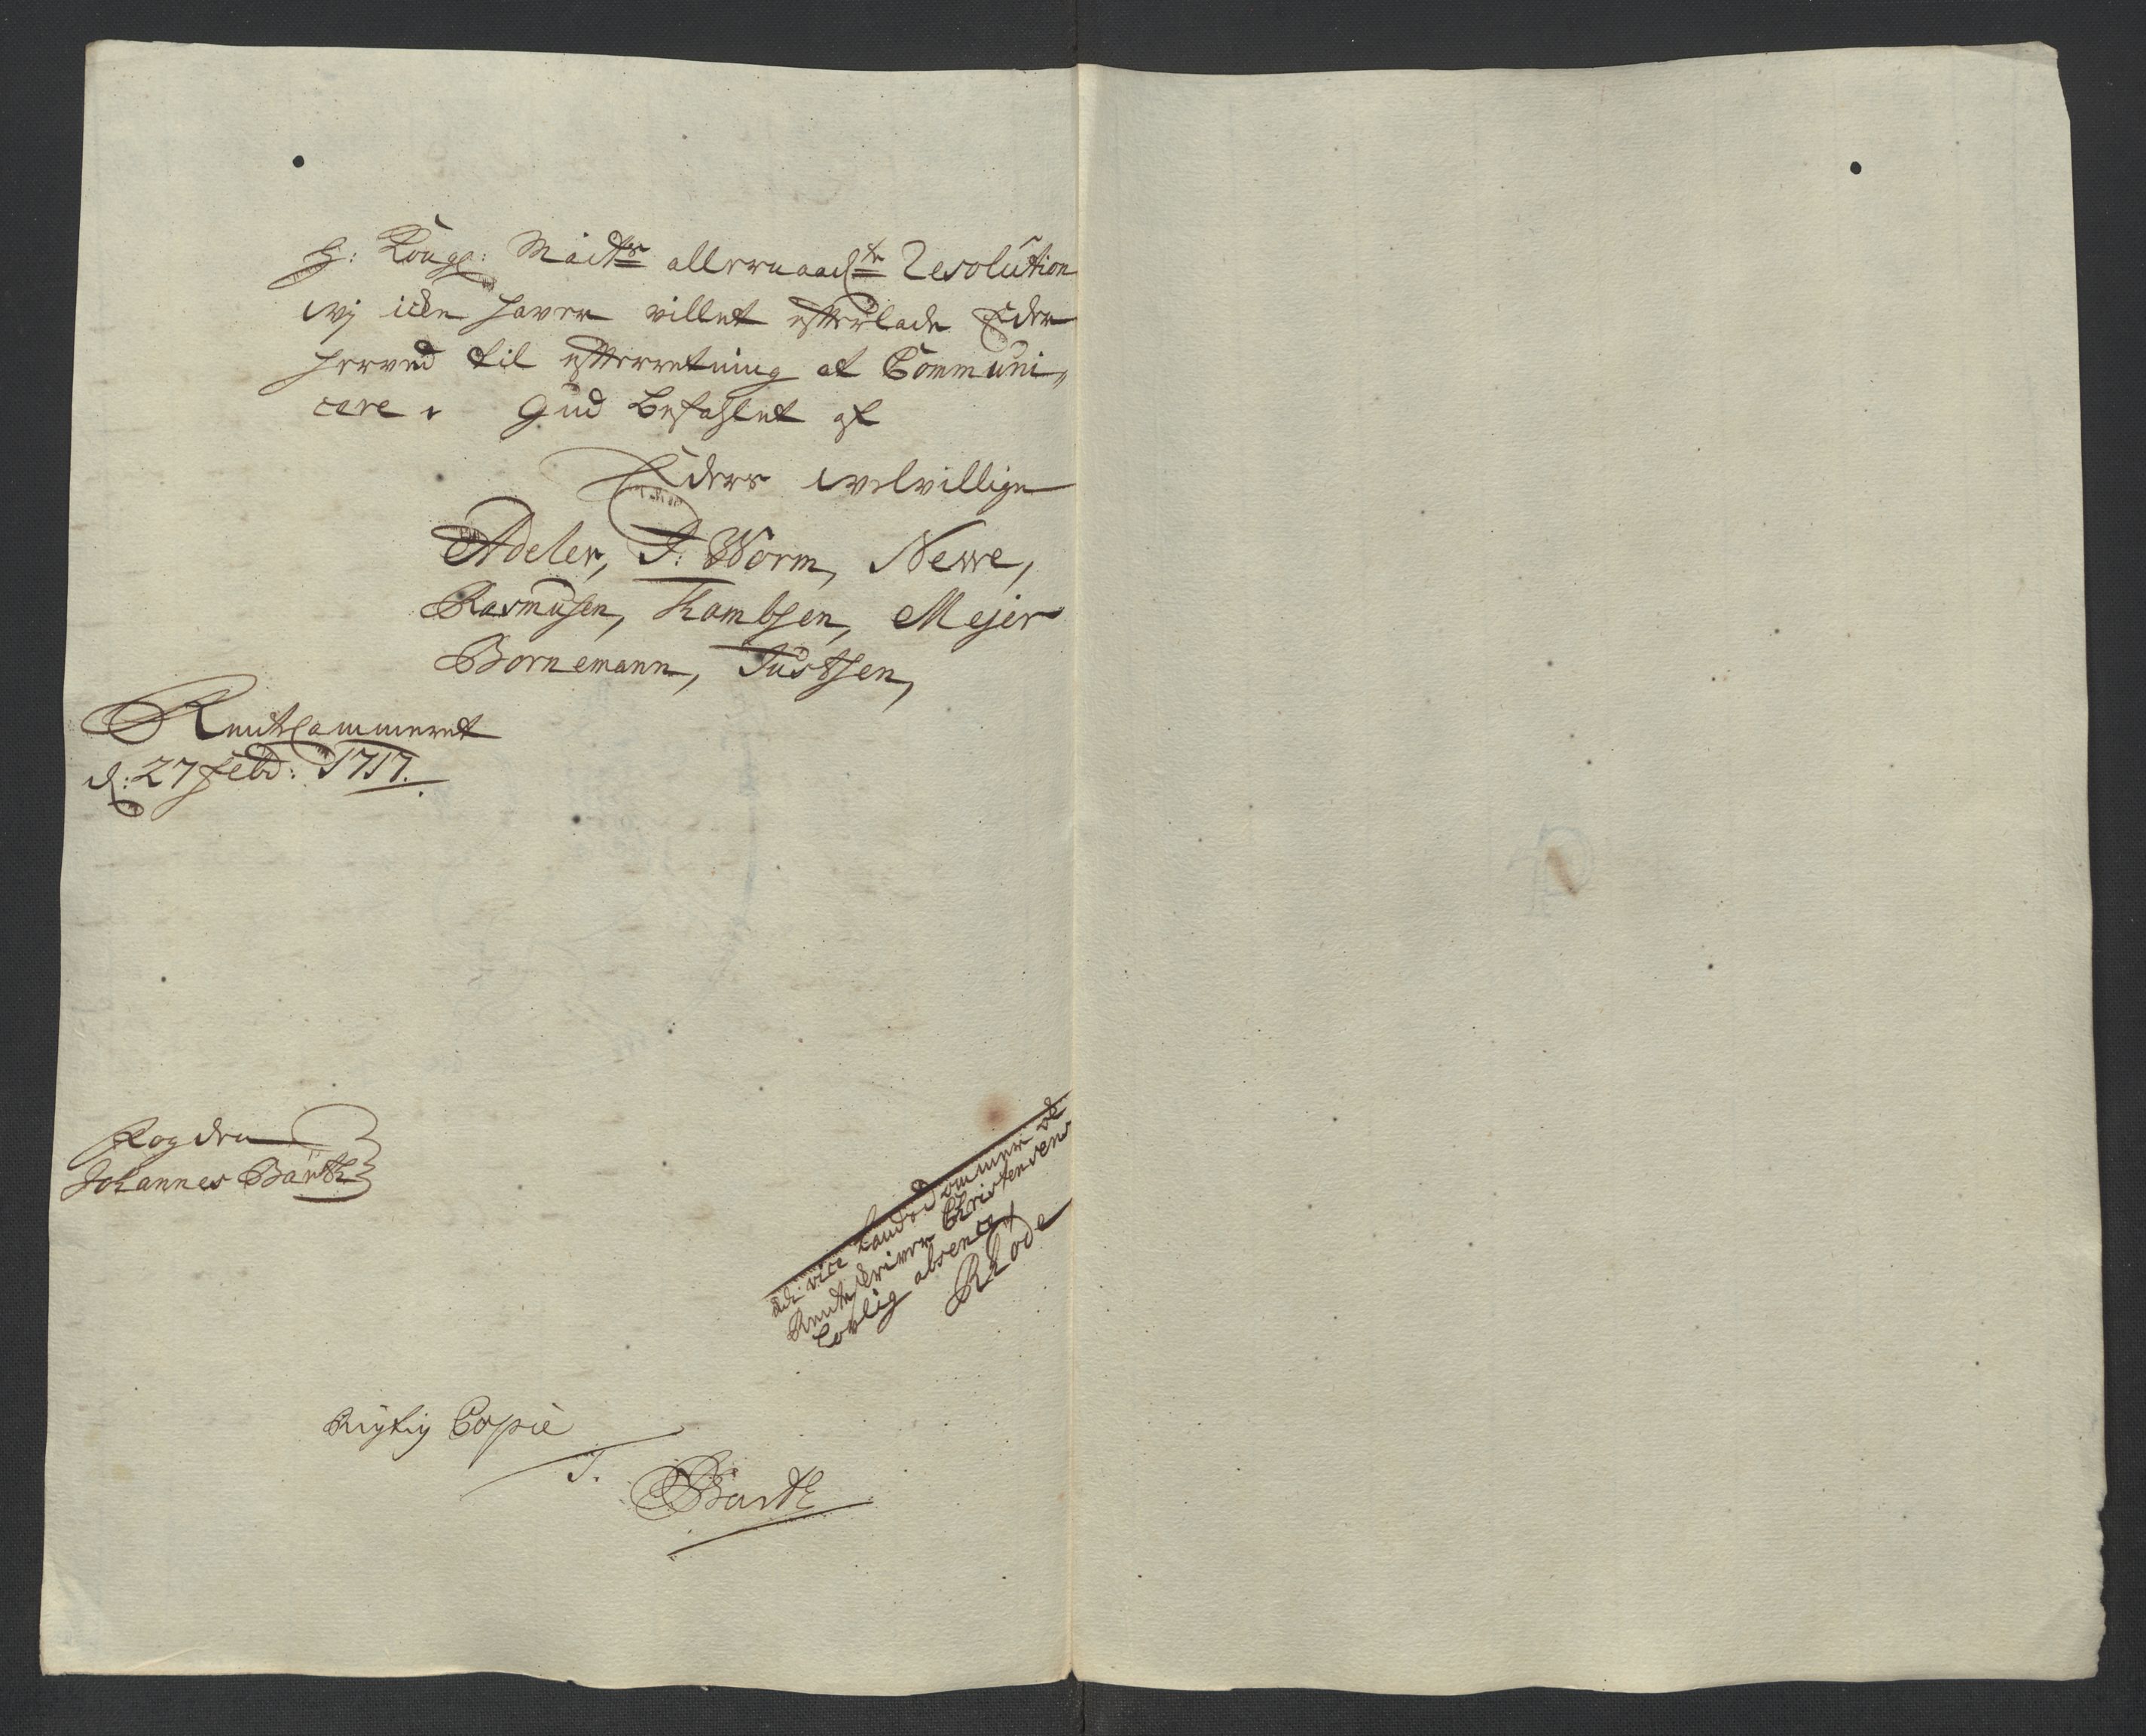 H: Kongl: Maits allernaadste Resolution
wj icke haver villet efterlade Eder
herved til efterretning at Communi„
cere. Gud befahlet af
Eders welvillige
Adeler, J: Worm, Newe,
Rasmusen, Kambsen, Mejer
Bornemann, Justsen,
Rentecammeret
d: 27 Feb: 1717.
Fogden
Johannes Barth
vice Laudsdommer
Renteskriver Christensens
Lovlig absence
Rhode
Rigtig Copie
J. Barth